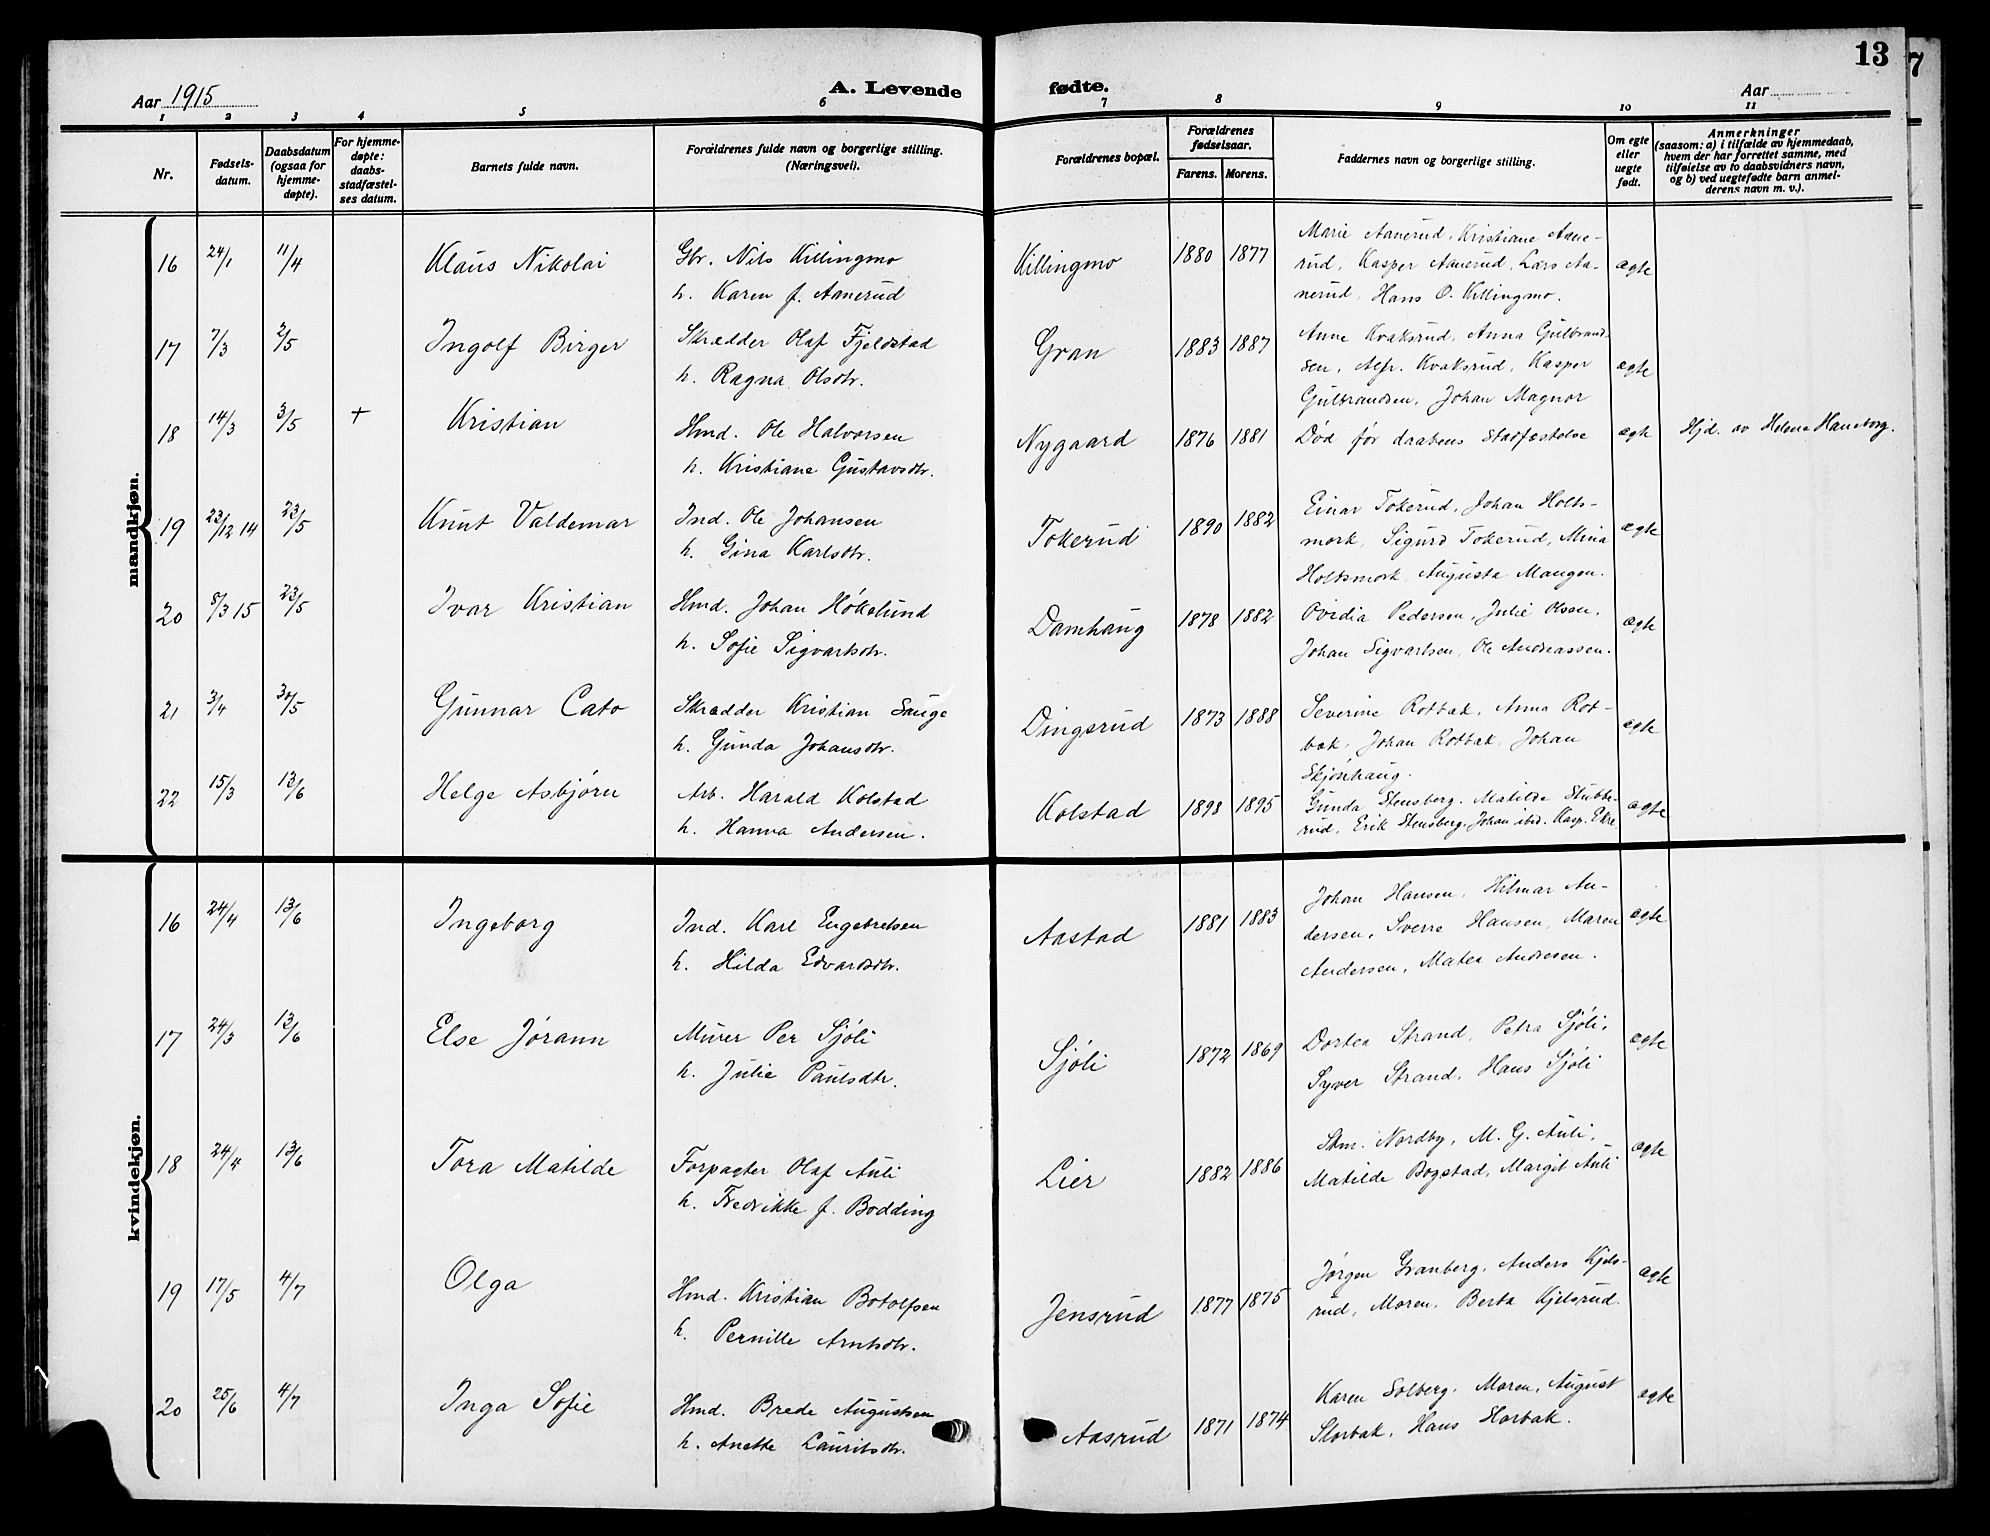 13
7
Aar 1915
A. Levende fødte.
Aar
1 2 3 4 5 6 7 8 9 10 11
Nr.
Fødsels-
datum.
Daabsdatum
(ogsaa for
hjemme-
døpte).
For hjemme-
døpte:
daabs-
stadfæstel-
ses datum.
Barnets fulde navn.
Forældrenes fulde navn og borgerlige stilling.
(Næringsvei).
Forældrenes bopæl.
Forældrenes
fødselsaar.
Farens. Morens.
Faddernes navn og borgerlige stilling.
Om egte
eller
uegte
født.
Anmerkninger
(saasom: a) i tilfælde av hjemmedaab,
hvem der har forrettet samme, med
tilføielse av to daabsvidners navn,
og b) ved uegtefødte barn anmel-
derens navn m. v.).
mandkjøn.
16 24/1 11/4 Klaus Nikolai Gbr. Nils Killingmo Killingmo 1880 1877 Marie Aanerud, Kristiane Aane-
h. Karen f. Aanerud rud, Kasper Aanerud, Lars Aa- egte
nerud, Hans O. Killingmo.
17 7/3 2/5 Ingolf Birger Skrædder Olaf Fjeldstad Gran 1883 1887 Anne Kvaksrud, Anna Gulbrand-
h. Ragna Olsdtr. sen, Alfr. Kvaksrud, Kasper egte
Gulbrandsen, Johan Magnor
18 14/3 3/5 + Kristian Hmd. Ole Halvorsen Nygaard 1876 1881 Død før daabens stadfæstelse egte Hjd. av Helene Haneborg.
h. Kristiane Gustavsdtr.
19 23/12 14 23/5 Knut Valdemar Ind. Ole Johansen Tokerud 1890 1882 Einar Tokerud, Johan Holts-
h. Gina Karlsdtr. mork, Sigurd Tokerud, Mina egte
Holtsmork, Augusta Mangen.
20 8/3 15 23/5 Ivar Kristian Hmd. Johan Høkelund Damhaug 1878 1882 Ovidia Pedersen, Julie Olsen, egte
h. Sofie Sigvartsdtr. Johan Sigvartsen, Ole Andreassen.
21 3/4 30/5 Gunnar Cato Skrædder Kristian Sauge Dingsrud 1873 1888 Severine Rotbæk, Anna Rot-
h. Gunda Johansdtr. bæk, Johan Rotbæk, Johan egte
Skjønhaug.
22 15/3 13/6 Helge Asbjørn Arb. Harald Kolstad Kolstad 1898 1895 Gunda Stensberg, Matilde Stubbe- egte
h. Hanna Andersen. rud, Erik Stensberg, Johan ibid. Kasp. Ekre
kvindekjøn.
16 24/4 13/6 Ingeborg Ind. Karl Engebretsen Aastad 1881 1883 Johan Hansen, Hilmar An-
h. Hilda Edvardsdtr. dersen, Sverre Hansen, Maren egte
Andersen, Matea Andresen.
17 24/3 13/6 Else Jørann Murer Per Sjøli Sjøli 1872 1869 Dortea Strand, Petra Sjøli, egte
h. Julie Paulsdtr. Syver Strand, Hans Sjøli
18 24/4 13/6 Tora Matilde Forpagter Olaf Auli Lier 1882 1886 Skm. Nordby, M. G. Auli, egte
h. Fredrikke f. Bødding Matilde Bogstad, Margit Auli
19 17/5 4/7 Olga Hmd. Kristian Botolfsen Jensrud 1877 1875 Jørgen Granberg, Anders Kjels- egte
h. Pernille Arntsdtr. rud, Moren, Berta Kjelsrud.
20 25/6 4/7 Inga Sofie Hmd. Brede Augustsen Aasrud 1871 1874 Karen Solberg, Moren, August egte
h. Anette Lauritsdtr. Storbak, Hans Horbak.